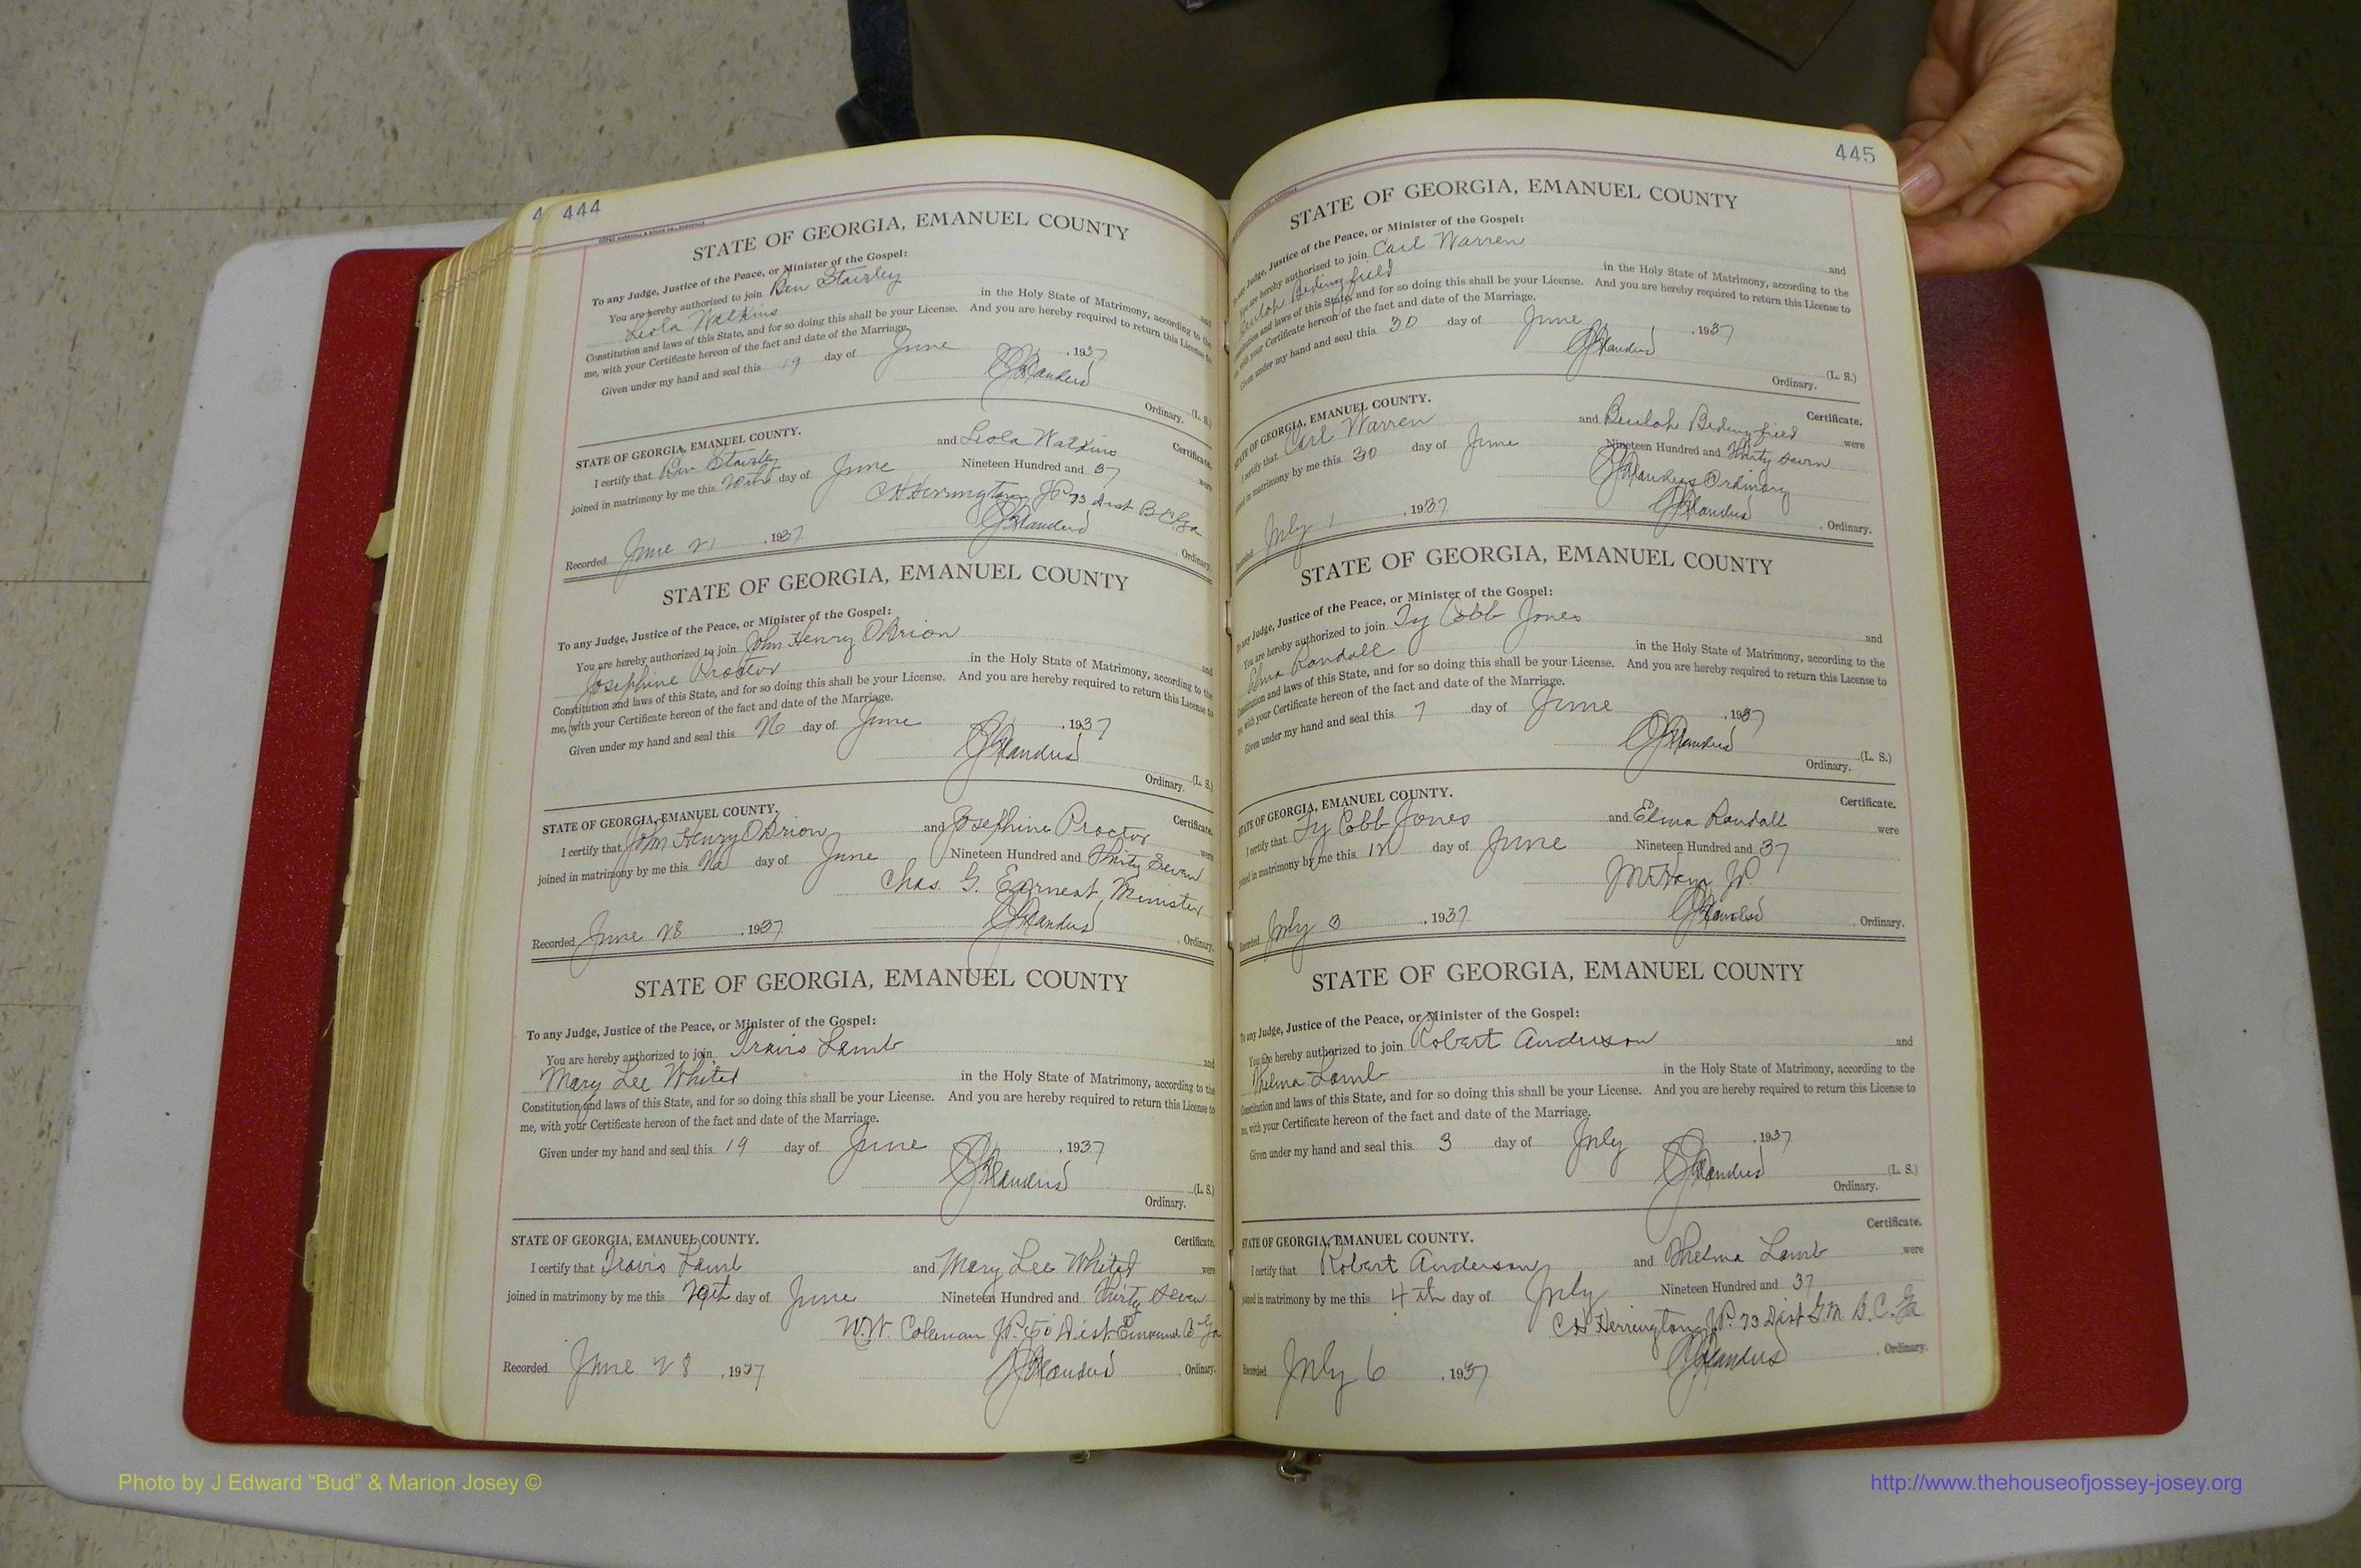 444
STATE OF GEORGIA, EMANUEL COUNTY
To any Judge, Justice of the Peace, or Minister of the Gospel:
You are hereby authorized to join Ben Stairley and
Leola Watkins in the Holy State of Matrimony, according to the
Constitution and laws of this State, and for so doing this shall be your License. And you are hereby required to return this License to
me, with your Certificate hereon of the fact and date of the Marriage.
Given under my hand and seal this 19 day of June, 1937
(L. S.)
Ordinary.
STATE OF GEORGIA, EMANUEL COUNTY. Certificate.
I certify that Ben Stairley and Leola Watkins were
joined in matrimony by me this 20th day of June Nineteen Hundred and 37
C H Herrington JP 73 Dist B C Ga
Recorded June 21, 1937 Ordinary.
STATE OF GEORGIA, EMANUEL COUNTY
To any Judge, Justice of the Peace, or Minister of the Gospel:
You are hereby authorized to join John Henry OBrion and
Josephine Proctor in the Holy State of Matrimony, according to the
Constitution and laws of this State, and for so doing this shall be your License. And you are hereby required to return this License to
me, with your Certificate hereon of the fact and date of the Marriage.
Given under my hand and seal this 26 day of June, 1937
(L. S.)
Ordinary.
STATE OF GEORGIA, EMANUEL COUNTY. Certificate.
I certify that John Henry OBrion and Josephine Proctor were
joined in matrimony by me this day of June Nineteen Hundred and Thirty Seven
Chas. G. Earnest, Minister
Recorded June 28, 1937 Ordinary.
STATE OF GEORGIA, EMANUEL COUNTY
To any Judge, Justice of the Peace, or Minister of the Gospel:
You are hereby authorized to join Travis Lamb and
Mary Lee Whited in the Holy State of Matrimony, according to the
Constitution and laws of this State, and for so doing this shall be your License. And you are hereby required to return this License to
me, with your Certificate hereon of the fact and date of the Marriage.
Given under my hand and seal this 19 day of June, 1937
(L. S.)
Ordinary.
STATE OF GEORGIA, EMANUEL COUNTY. Certificate.
I certify that Travis Lamb and Mary Lee Whited were
joined in matrimony by me this day of June Nineteen Hundred and Thirty Seven
W.W. Coleman J.P. 50 Dist Emanuel Ga
Recorded June 28, 1937 Ordinary.
445
STATE OF GEORGIA, EMANUEL COUNTY
To any Judge, Justice of the Peace, or Minister of the Gospel:
You are hereby authorized to join Carl Warren and
Beulah Bedingfield in the Holy State of Matrimony, according to the
Constitution and laws of this State, and for so doing this shall be your License. And you are hereby required to return this License to
me, with your Certificate hereon of the fact and date of the Marriage.
Given under my hand and seal this 30 day of June, 1937
(L. S.)
Ordinary.
STATE OF GEORGIA, EMANUEL COUNTY. Certificate.
I certify that Carl Warren and Beulah Bedingfield were
joined in matrimony by me this 30 day of June Nineteen Hundred and Thirty Seven
Ordinary
Recorded July 1, 1937 Ordinary.
STATE OF GEORGIA, EMANUEL COUNTY
To any Judge, Justice of the Peace, or Minister of the Gospel:
You are hereby authorized to join Ty Cobb Jones and
Elma Randall in the Holy State of Matrimony, according to the
Constitution and laws of this State, and for so doing this shall be your License. And you are hereby required to return this License to
me, with your Certificate hereon of the fact and date of the Marriage.
Given under my hand and seal this 7 day of June, 1937
(L. S.)
Ordinary.
STATE OF GEORGIA, EMANUEL COUNTY. Certificate.
I certify that Ty Cobb Jones and Elma Randall were
joined in matrimony by me this 12 day of June Nineteen Hundred and 37
J.P.
Recorded July 3, 1937 Ordinary.
STATE OF GEORGIA, EMANUEL COUNTY
To any Judge, Justice of the Peace, or Minister of the Gospel:
You are hereby authorized to join Robert Anderson and
Thelma Lamb in the Holy State of Matrimony, according to the
Constitution and laws of this State, and for so doing this shall be your License. And you are hereby required to return this License to
me, with your Certificate hereon of the fact and date of the Marriage.
Given under my hand and seal this 3 day of July, 1937
(L. S.)
Ordinary.
STATE OF GEORGIA, EMANUEL COUNTY. Certificate.
I certify that Robert Anderson and Thelma Lamb were
joined in matrimony by me this 4th day of July Nineteen Hundred and 37
C H Herrington J.P. 73 Dist G.M. B.C. Ga
Recorded July 6, 1937 Ordinary.
Photo by J Edward “Bud” & Marion Josey ©
http://www.thehouseofjossey-josey.org